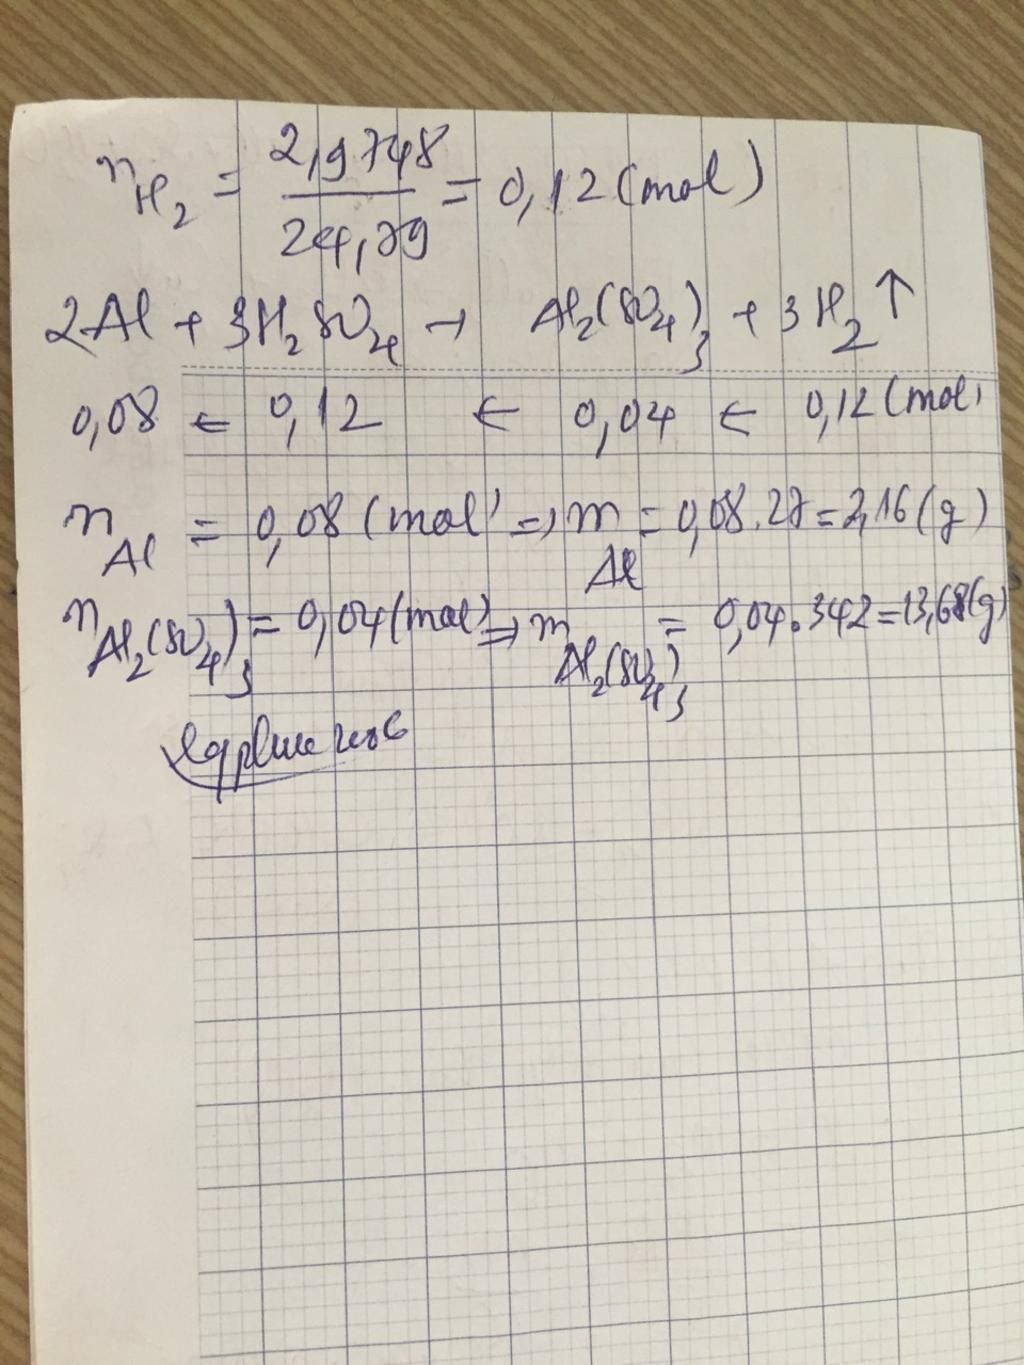 n_H₂ = 2,9748/24,79 = 0,12 (mol)
2Al + 3H₂SO₄ → Al₂(SO₄)₃ + 3H₂ ↑
0,08 ← 0,12 ← 0,04 ← 0,12 (mol)
n_Al = 0,08 (mol) ⇒ m_Al = 0,08.27 = 2,16 (g)
n_Al₂(SO₄)₃ = 0,04 (mol) ⇒ m_Al₂(SO₄)₃ = 0,04.342 = 13,68 (g)